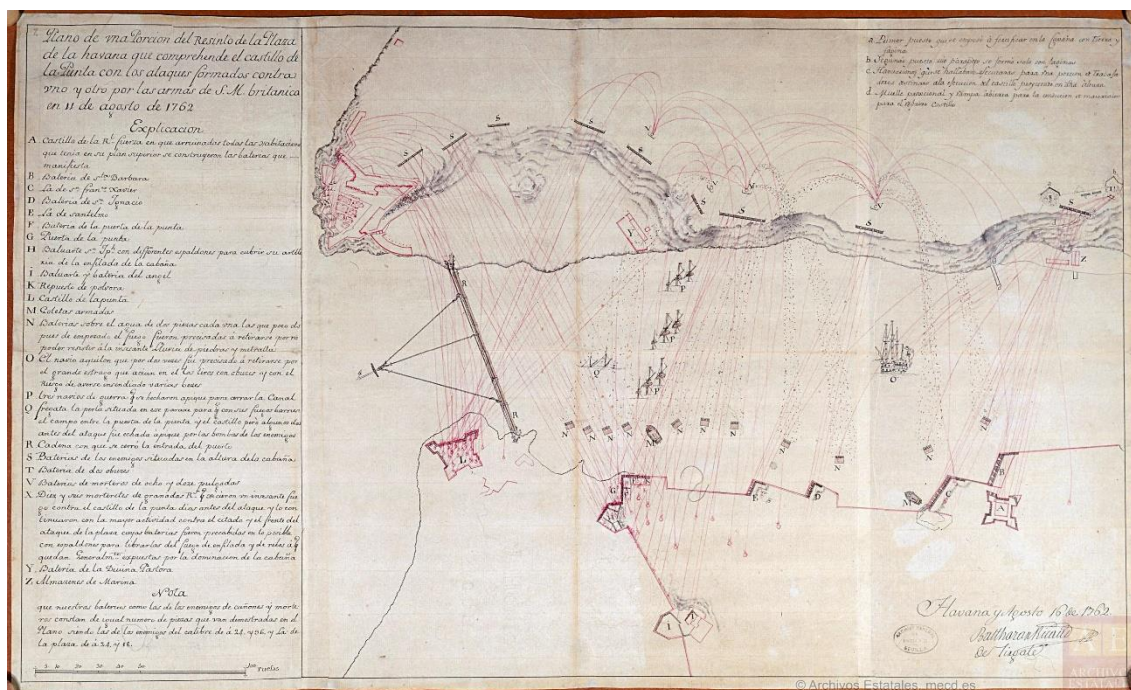 Plano de vna Porcion del Resinto de la Plaza
de la havana que comprehende el castillo de
la Punta con los ataques formados contra
vno y otro por las armas de S. M. britanica
en 11 de agosto de 1762
Explicacion
A Castillo de la Rl. fuerza en que arruinadas todas las vabitaciones
que tenia en su plan superior se construyeron las baterias que
manifiesta
B Bateria de sta. Barbara
C La de sn. franco. Xavier
D Bateria de sn. Ignacio
E La de santelmo
F Bateria de la puerta de la punta
G Puerta de la punta
H Baluarte sn. Tph. con differentes espaldones para cubrir su artille
ria de la enfilada de la cabaña
I Baluarte y bateria del angel
K Repuesto de polvora
L Castillo de la punta
M Goletas armadas
N Baterias sobre el agua de dos piezas cada vna las que poco des
pues de empezado el fuego fueron precisadas a retirarse por no
poder resistir a la insesante lluvia de piedras y metralla
O El navio aquilon que por dos vezes fue precisado à retirarse por
el grande estrago que acian en el los tiros con obuces y con el
riesgo de averse insendiado varias vezes
P tres navios de guerra q se hecharon apique para serrar la Canal
Q fregata la perla situada en ese paraxe para q con sus fuegos barriese
el campo entre la puerta de la punta y el castillo pero algunos dias
antes del ataque fue echada apique por las bombas de los enemigos
R Cadena con que se cerro la entrada del puerto
S Baterias de los enemigos situadas en la altura de la cabaña
T Bateria de dos obuses
V Baterias de morteros de ocho y doze pulgadas
X Diez y seis morteretes de granadas Rs. q hicieron vn insasante fue
go contra el castillo de la punta dias antes del ataque y lo con
tinuaron con la mayor actividad contra el citado y el frente del
ataque de la plaza cuyas baterias fueron precabidas en lo posible
con espaldones para librarlas del fuego de enfilada y de rebes à q
quedan Generalmte. expuestas por la dominacion de la cabaña
Y Bateria de la Divina Pastora
Z Almazenes de Marina
Nota
que nuestras baterias como las de los enemigos de cañones y morte
ros constan de igual numero de piezas que van demostradas en el
Plano siendo las de los enemigos del calibre de a 24. y 36. y la de
la plaza de à 24. y 18.
a Primer puesto que se empezó à fortificar en la Cabaña con tierra y
fagina
b Segundo puesto cuio parapeto se formó solo con faginas
d Muelle provicional y Rampa
para el Castillo
Havana y Agosto 16 de 1762.
Balthasar Ricaud
de Tirgale
© Archivos Estatales, mecd.es
ARCHIVOS
ESTATALES